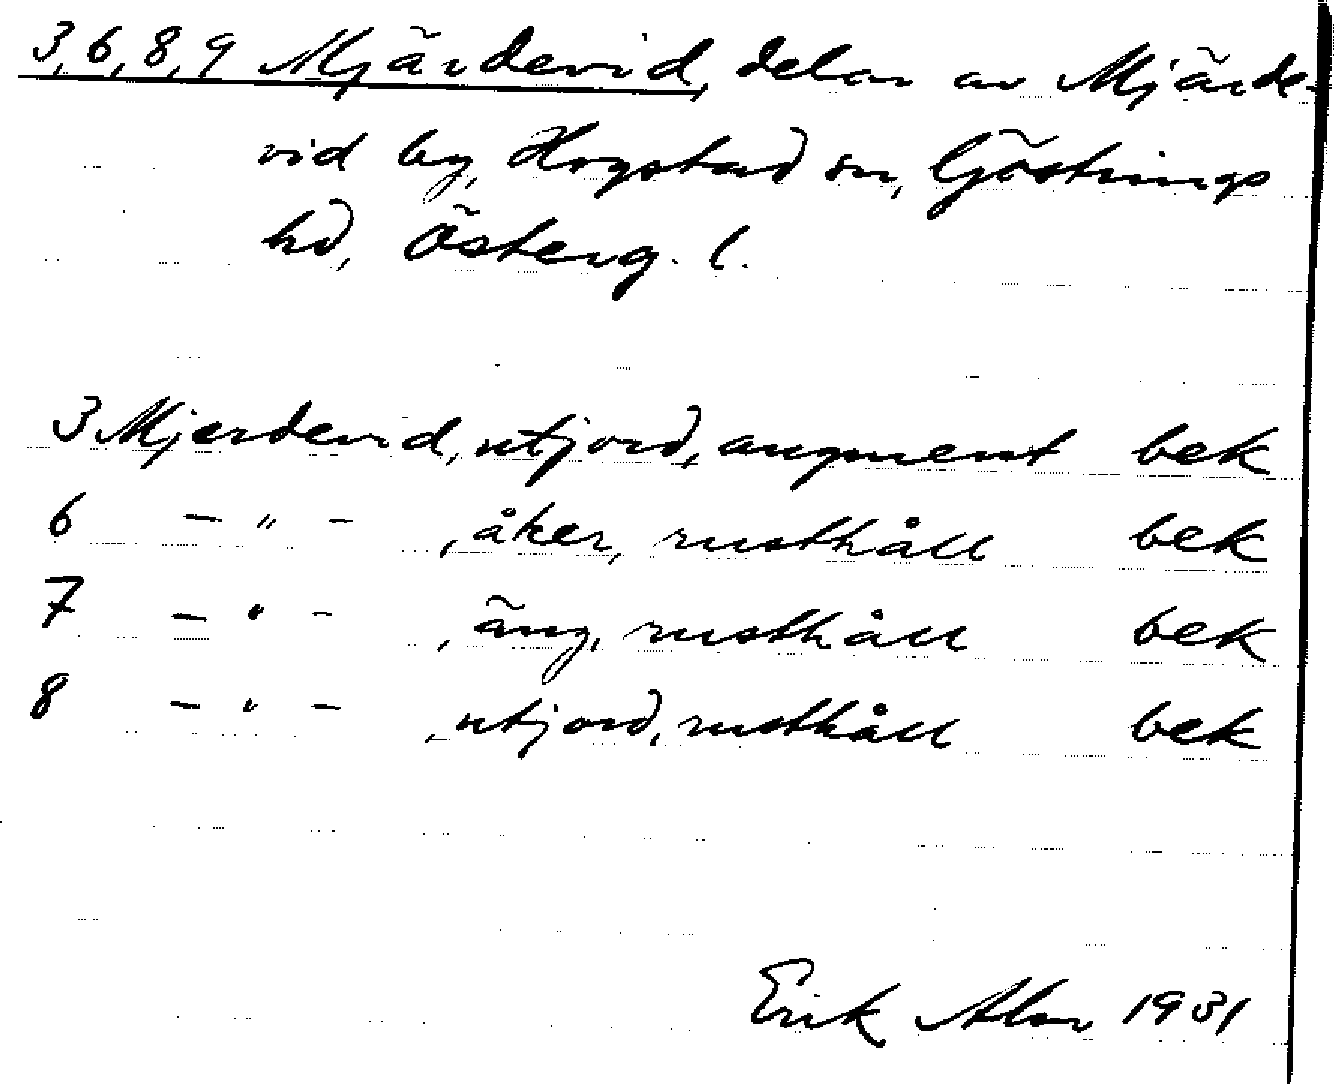 3, 6, 8, 9 Mjärdevid, delar av Mjärde-
vid by, Hogstad sn, Göstrings
hd, Österg. l.
3 Mjerdevid, utjord, augment bek
6 - " - , åker, rusthåll bek
7 - " - , äng, rusthåll bek
8 - " - , utjord, rusthåll bek
Erik Abr 1931